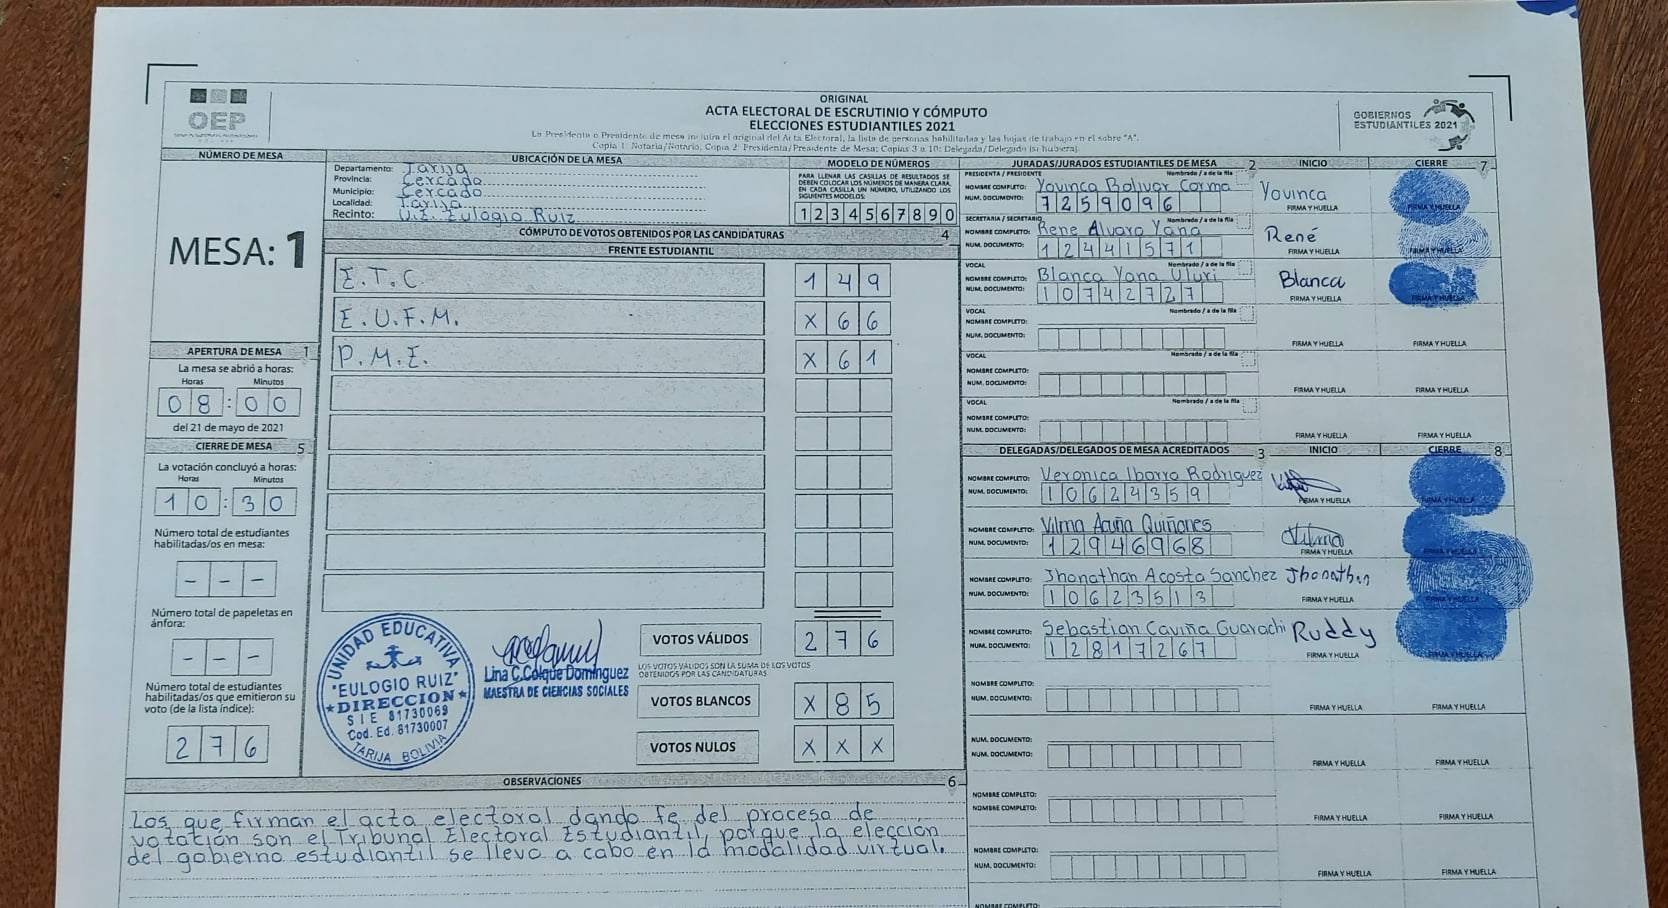 ORIGINAL
ACTA ELECTORAL DE ESCRUTINIO Y CÓMPUTO
ELECCIONES ESTUDIANTILES 2021
OEP
GOBIERNOS
ESTUDIANTILES 2021
NÚMERO DE MESA
MESA: 1
APERTURA DE MESA 1
La mesa se abrió a horas:
Horas Minutos
08:00
del 21 de mayo de 2021
CIERRE DE MESA 5
La votación concluyó a horas:
Horas Minutos
10:30
Número total de estudiantes
habilitadas/os en mesa:
- - -
Número total de papeletas en
ánfora:
- - -
Número total de estudiantes
habilitadas/os que emitieron su
voto (de la lista índice):
276
UBICACIÓN DE LA MESA
Departamento: Tarija
Provincia: Cercado
Municipio: Cercado
Localidad: Tarija
Recinto: U.E. Eulogio Ruiz
MODELO DE NÚMEROS
PARA LLENAR LAS CASILLAS DE RESULTADOS SE
DEBEN COLOCAR LOS NÚMEROS DE MANERA CLARA,
EN CADA CASILLA UN NÚMERO, UTILIZANDO LOS
SIGUIENTES MODELOS:
1 2 3 4 5 6 7 8 9 0
CÓMPUTO DE VOTOS OBTENIDOS POR LAS CANDIDATURAS 4
FRENTE ESTUDIANTIL
E.T.C. 149
E.U.F.M. X66
P.M.E. X61
VOTOS VÁLIDOS 276
LOS VOTOS VÁLIDOS SON LA SUMA DE LOS VOTOS
OBTENIDOS POR LAS CANDIDATURAS
VOTOS BLANCOS X85
VOTOS NULOS XXX
UNIDAD EDUCATIVA
"EULOGIO RUIZ"
DIRECCION
SIE 81730069
Cod. Ed. 81730007
TARIJA BOLIVIA
Lina C. Colque Dominguez
MAESTRA DE CIENCIAS SOCIALES
OBSERVACIONES 6
Los que firman el acta electoral dando fe del proceso de
votación son el Tribunal Electoral Estudiantil, porque la elección
del gobierno estudiantil se llevo a cabo en la modalidad virtual.
JURADAS/JURADOS ESTUDIANTILES DE MESA 2 INICIO CIERRE 7
PRESIDENTA / PRESIDENTE Nombrado / a de la fila
NOMBRE COMPLETO: Yovinca Bolivar Corma Yovinca
NUM. DOCUMENTO: 7259096 FIRMA Y HUELLA FIRMA Y HUELLA
SECRETARIA / SECRETARIO Nombrado / a de la fila
NOMBRE COMPLETO: Rene Alvaro Yana René
NUM. DOCUMENTO: 12441571 FIRMA Y HUELLA FIRMA Y HUELLA
VOCAL Nombrado / a de la fila
NOMBRE COMPLETO: Blanca Yana Blanca
NUM. DOCUMENTO: 10742727 FIRMA Y HUELLA FIRMA Y HUELLA
VOCAL Nombrado / a de la fila
NOMBRE COMPLETO:
NUM. DOCUMENTO: FIRMA Y HUELLA FIRMA Y HUELLA
VOCAL Nombrado / a de la fila
NOMBRE COMPLETO:
NUM. DOCUMENTO: FIRMA Y HUELLA FIRMA Y HUELLA
VOCAL Nombrado / a de la fila
NOMBRE COMPLETO:
NUM. DOCUMENTO: FIRMA Y HUELLA FIRMA Y HUELLA
DELEGADAS/DELEGADOS DE MESA ACREDITADOS 3 INICIO CIERRE 8
NOMBRE COMPLETO: Veronica Ibarra Rodriguez
NUM. DOCUMENTO: 10624359 FIRMA Y HUELLA FIRMA Y HUELLA
NOMBRE COMPLETO: Vilma Acuña Quiñones Vilma
NUM. DOCUMENTO: 12946968 FIRMA Y HUELLA FIRMA Y HUELLA
NOMBRE COMPLETO: Jhonathan Acosta Sanchez Jhonathan
NUM. DOCUMENTO: 10623513 FIRMA Y HUELLA FIRMA Y HUELLA
NOMBRE COMPLETO: Sebastian Caviña Guarachi Ruddy
NUM. DOCUMENTO: 12817267 FIRMA Y HUELLA FIRMA Y HUELLA
NOMBRE COMPLETO:
NUM. DOCUMENTO: FIRMA Y HUELLA FIRMA Y HUELLA
NOMBRE COMPLETO:
NUM. DOCUMENTO: FIRMA Y HUELLA FIRMA Y HUELLA
NOMBRE COMPLETO:
NUM. DOCUMENTO: FIRMA Y HUELLA FIRMA Y HUELLA
NOMBRE COMPLETO:
NUM. DOCUMENTO: FIRMA Y HUELLA FIRMA Y HUELLA
NOMBRE COMPLETO: